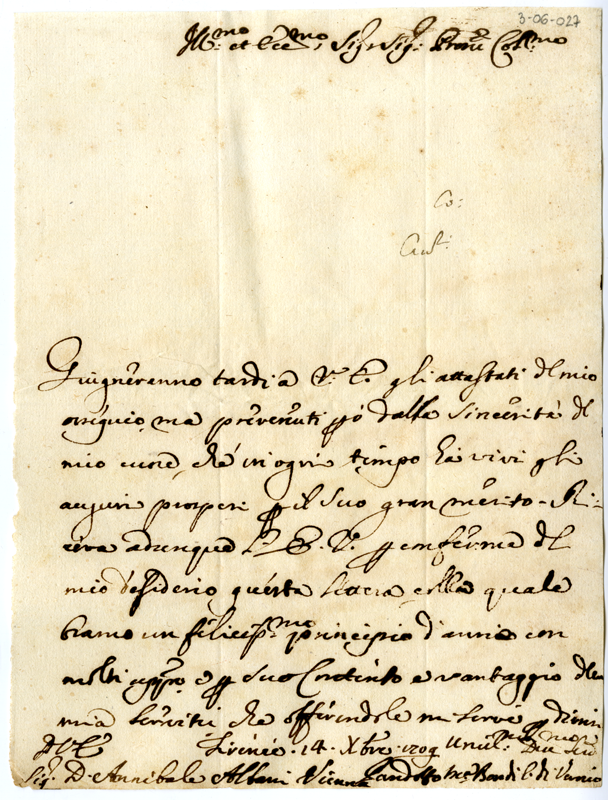 3-06-027
Ill.mo et Ecc.mo Sig.r Sig.r Prone Coll.mo
Co:
Aust:
Giugneranno tardi a V. E. gli attestati del mio
ossequio, ma prevenuti però dalla sincerità del
mio cuore, che in ogni tempo ha vivi gli
auguri prosperi p il suo gran merito. Ri-
ceva adunque L'E. V. p conferma del
mio desiderio questa lettera colla quale
bramo un felicissmo principio d'anno con
molti appo e p suo Contento e vantaggio della
mia servitù che offerendole mi servo p
D V E Firenze 14 Xbre 1709 Umil.mo
Sig. D. Annibale Albani Vienna Bardi C. di Vernio